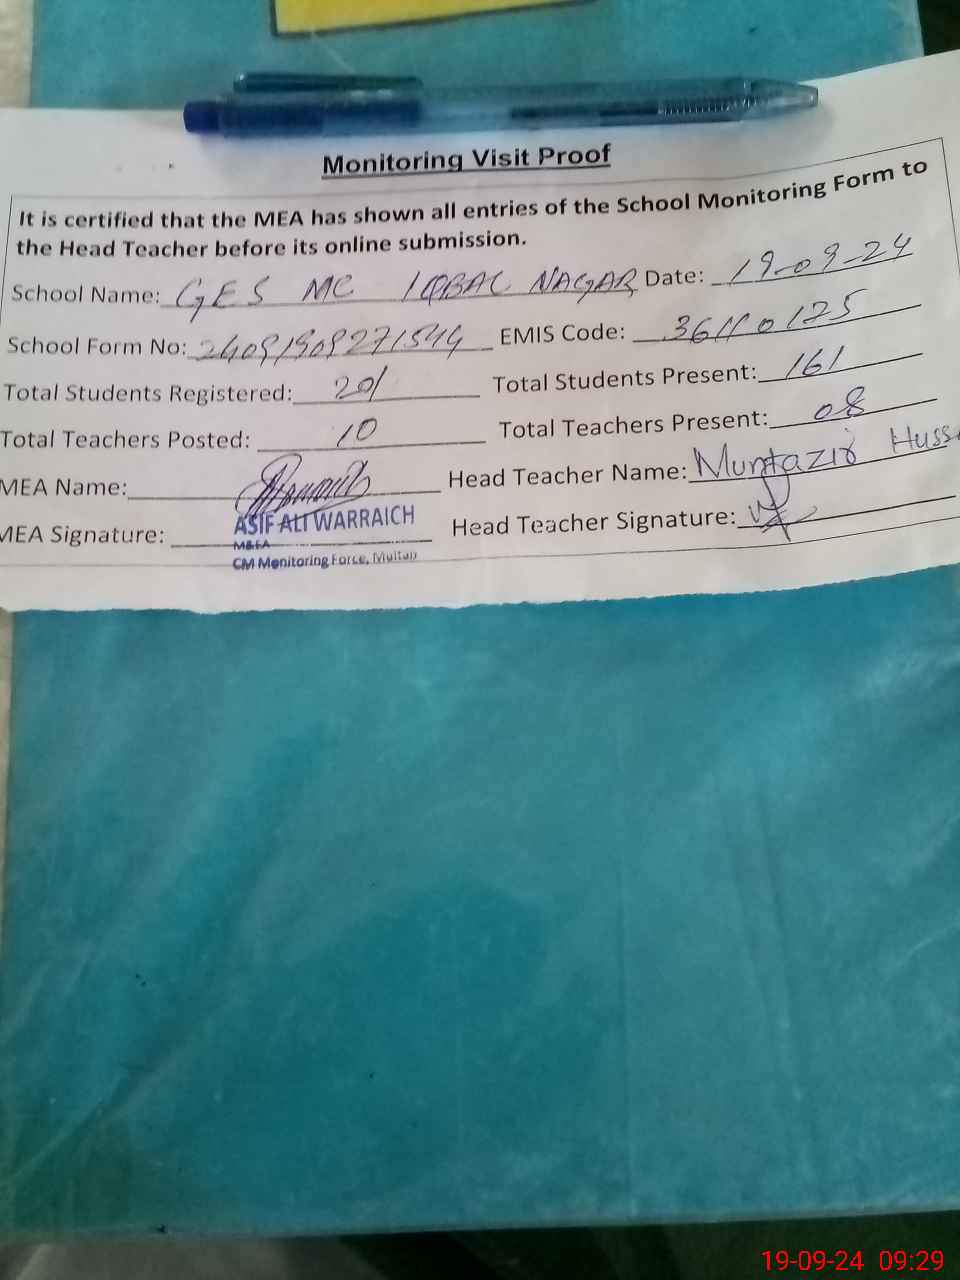 Monitoring Visit Proof
It is certified that the MEA has shown all entries of the School Monitoring Form to
the Head Teacher before its online submission.
School Name: GES MC IQBAL NAGAR Date: 19-09-24
School Form No: EMIS Code: 36110125
Total Students Registered: 201 Total Students Present: 161
Total Teachers Posted: 10 Total Teachers Present: 08
MEA Name: Head Teacher Name: Muntazir Huss
MEA Signature: Head Teacher Signature:
ASIF ALI WARRAICH
M&EA
CM Monitoring Force, Multan
19-09-24 09:29